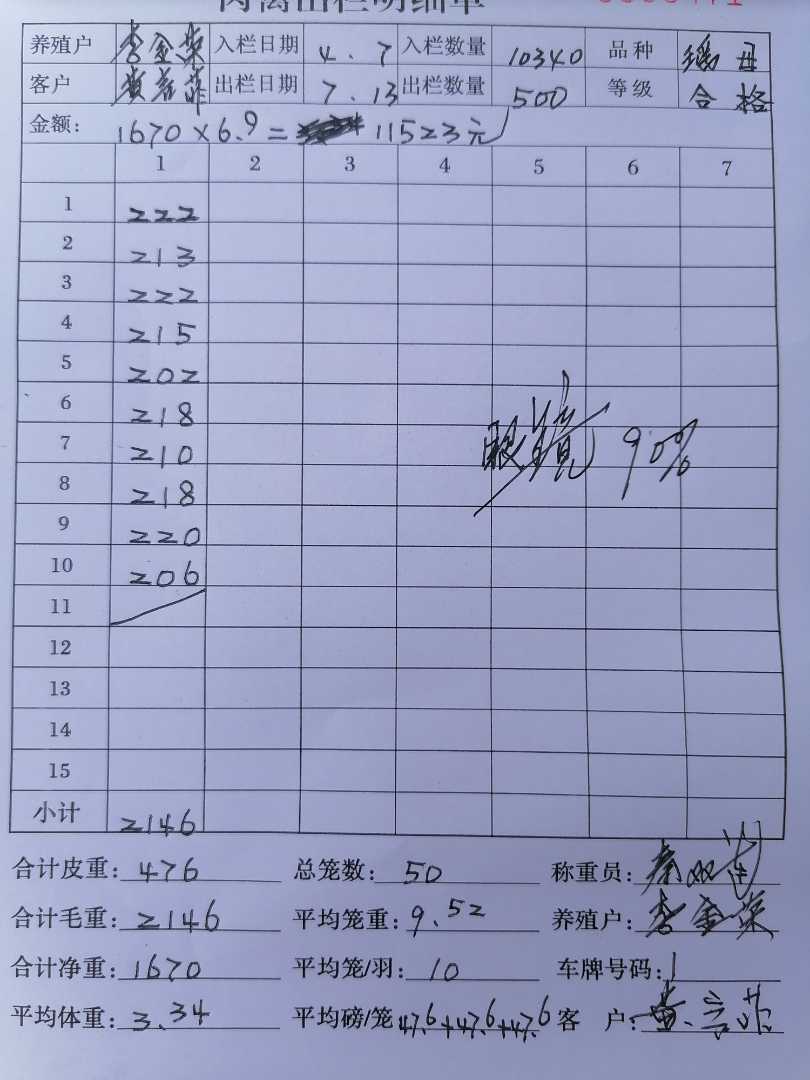 肉禽出栏明细单
养殖户 李金荣 入栏日期 4.7 入栏数量 10340 品种 瑶母
客户 出栏日期 7.13 出栏数量 500 等级 合格
金额: 1670×6.9= 11523元
1 2 3 4 5 6 7
1 222
2 213
3 222
4 215
5 202
6 218
7 210
8 218
9 220
10 206
11
12
13
14
15
眼镜 90%
小计 2146
合计皮重: 476 总笼数: 50 称重员:
合计毛重: 2146 平均笼重: 9.52 养殖户: 李金荣
合计净重: 1670 平均笼/羽: 10 车牌号码:
平均体重: 3.34 平均磅/笼 47.6+47.6+47.6 客 户: